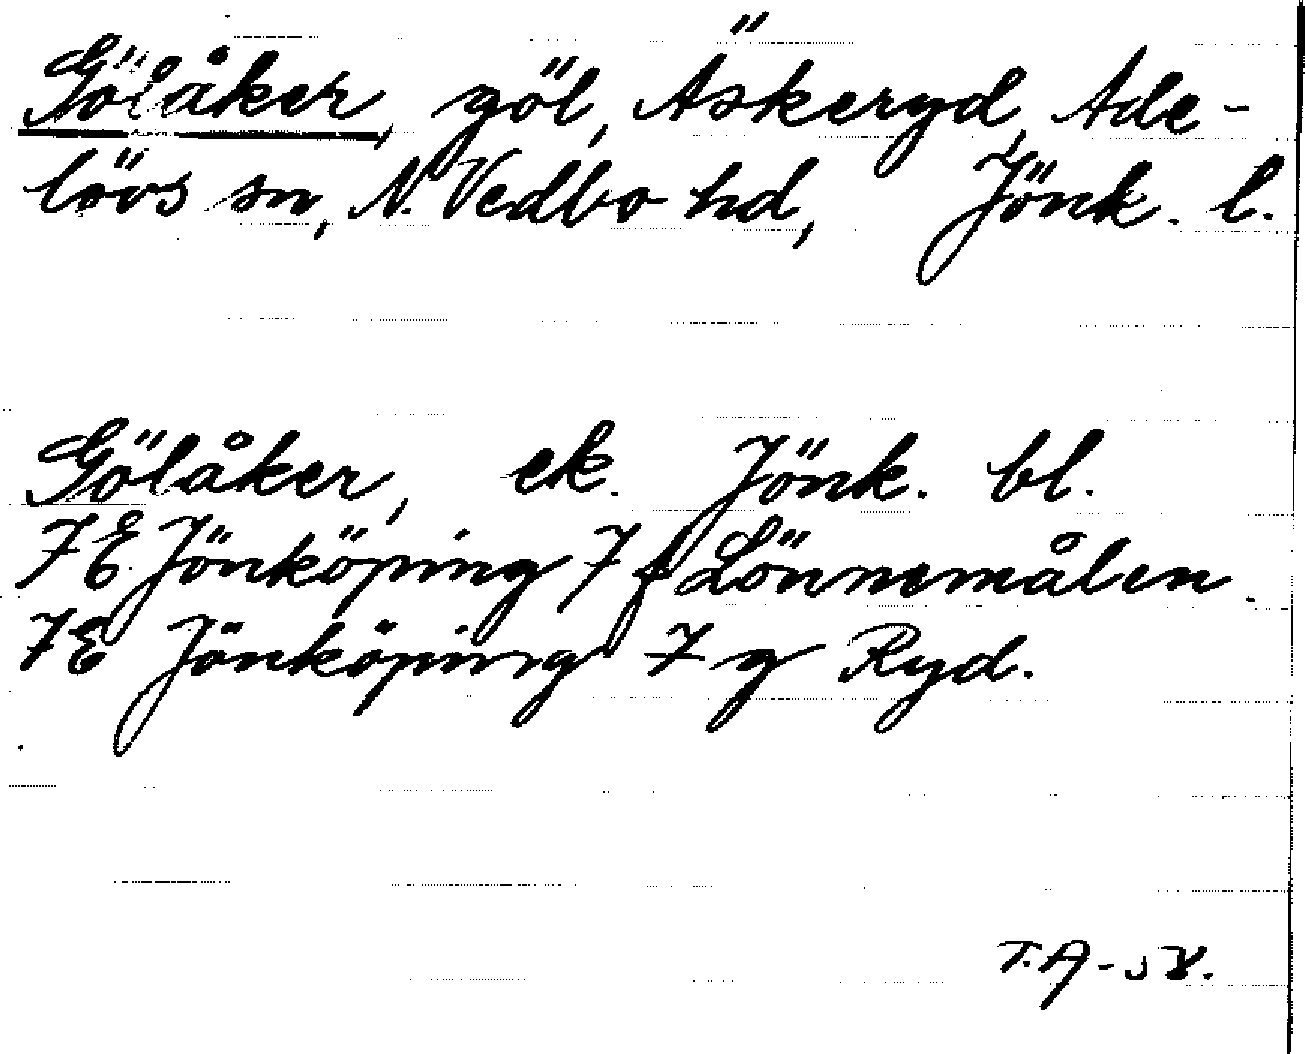 Gölåker, göl, Äskeryd, Ade-
lövs sn, N. Vedbo hd, Jönk. l.
Gölåker, ek. Jönk. bl.
7E Jönköping 7 f Lönnemålen.
7E Jönköping 7 g Ryd.